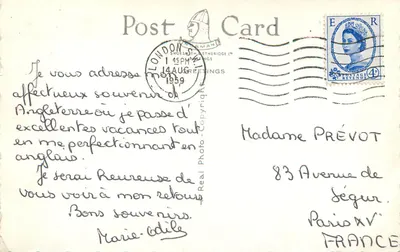 Post Card
E R
LONDON
1 15 PM
4 AUG
1959
GREETINGS
Real Photo - Copyright
Je vous adresse mon
affectueux souvenir d'
Angleterre où je passe d'
excellentes vacances tout
en me perfectionnant en
anglais.
Je serai heureuse de
vous voir à mon retour.
Bons souvenirs.
Marie-Odile
Madame PRÉVOT
83 Avenue de
Ségur.
Paris XVe
FRANCE